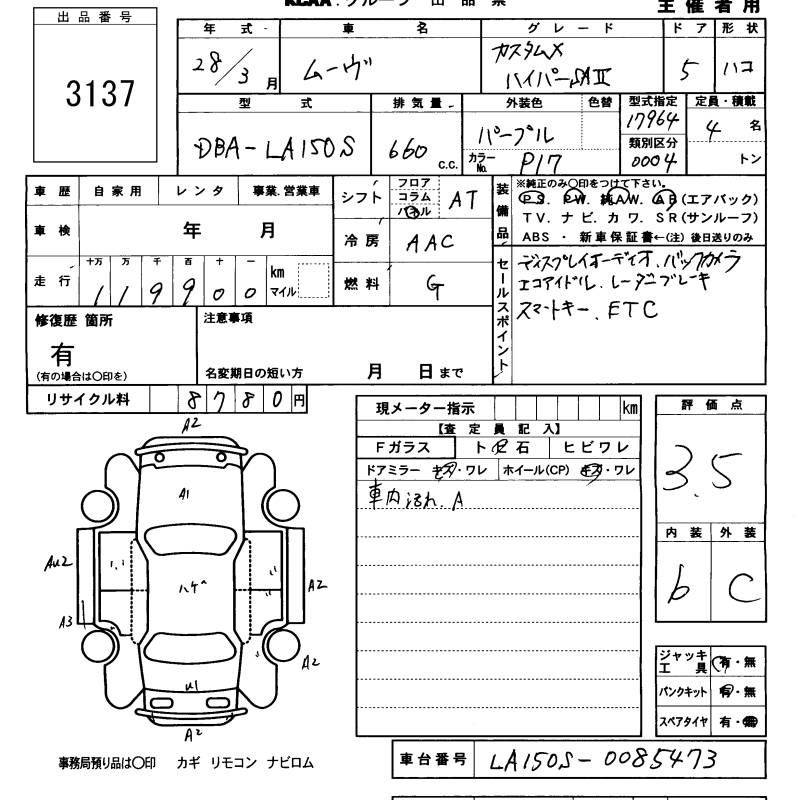 KCAA グループ 出品票
主催者用
出品番号
3137
年式 車名 グレード ドア 形状
28/3月 ムーヴ カスタムX ハイパーSAⅡ 5 ハコ
型式 排気量 外装色 色替 型式指定 定員・積載
DBA-LA150S 660 c.c. パープル 17964 4名
カラーNo. P17 類別区分 0004 トン
車歴 自家用 レンタ 事業.営業車
車検 年 月
走行 十万 万 千 百 十 一 km マイル
1 1 9 9 0 0
シフト フロア コラム パネル AT
冷房 AAC
燃料 G
装備品
※純正のみ○印をつけて下さい。
PS. PW. 純AW. AB(エアバック)
TV. ナビ. カワ. SR(サンルーフ)
ABS ・ 新車保証書←(注) 後日送りのみ
セールスポイント
ディスプレイオーディオ.バックカメラ
エコアイドル.レーダーブレーキ
スマートキー.ETC
修復歴 箇所
有
(有の場合は○印を)
注意事項
名変期日の短い方 月 日まで
リサイクル料 8780円
現メーター指示 km
【査定員記入】
Fガラス ト石 ヒビワレ
ドアミラー キズ・ワレ ホイール(CP) キズ・ワレ
車内汚れ.A
評価点
3.5
内装 外装
b C
ジャッキ工具 有・無
パンクキット 有・無
スペアタイヤ 有・無
A2
A1
AU2
ハゲ
A2
A3
A2
U1
A2
事務局預り品は○印 カギ リモコン ナビロム
車台番号 LA150S-0085473